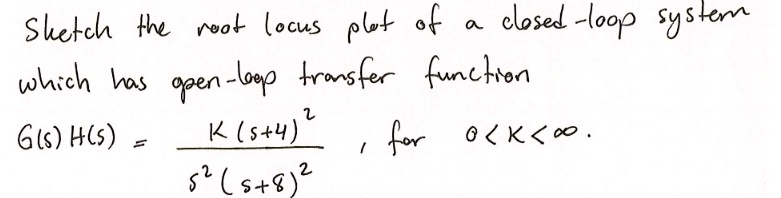 Sketch the root locus plot of a closed-loop system
which has open-loop transfer function
G(s) H(s) = K (s+4)² / s² (s+8)² , for 0 < K < ∞.